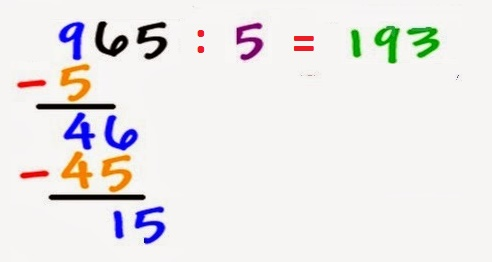 965 : 5 = 193
- 5
46
- 45
15